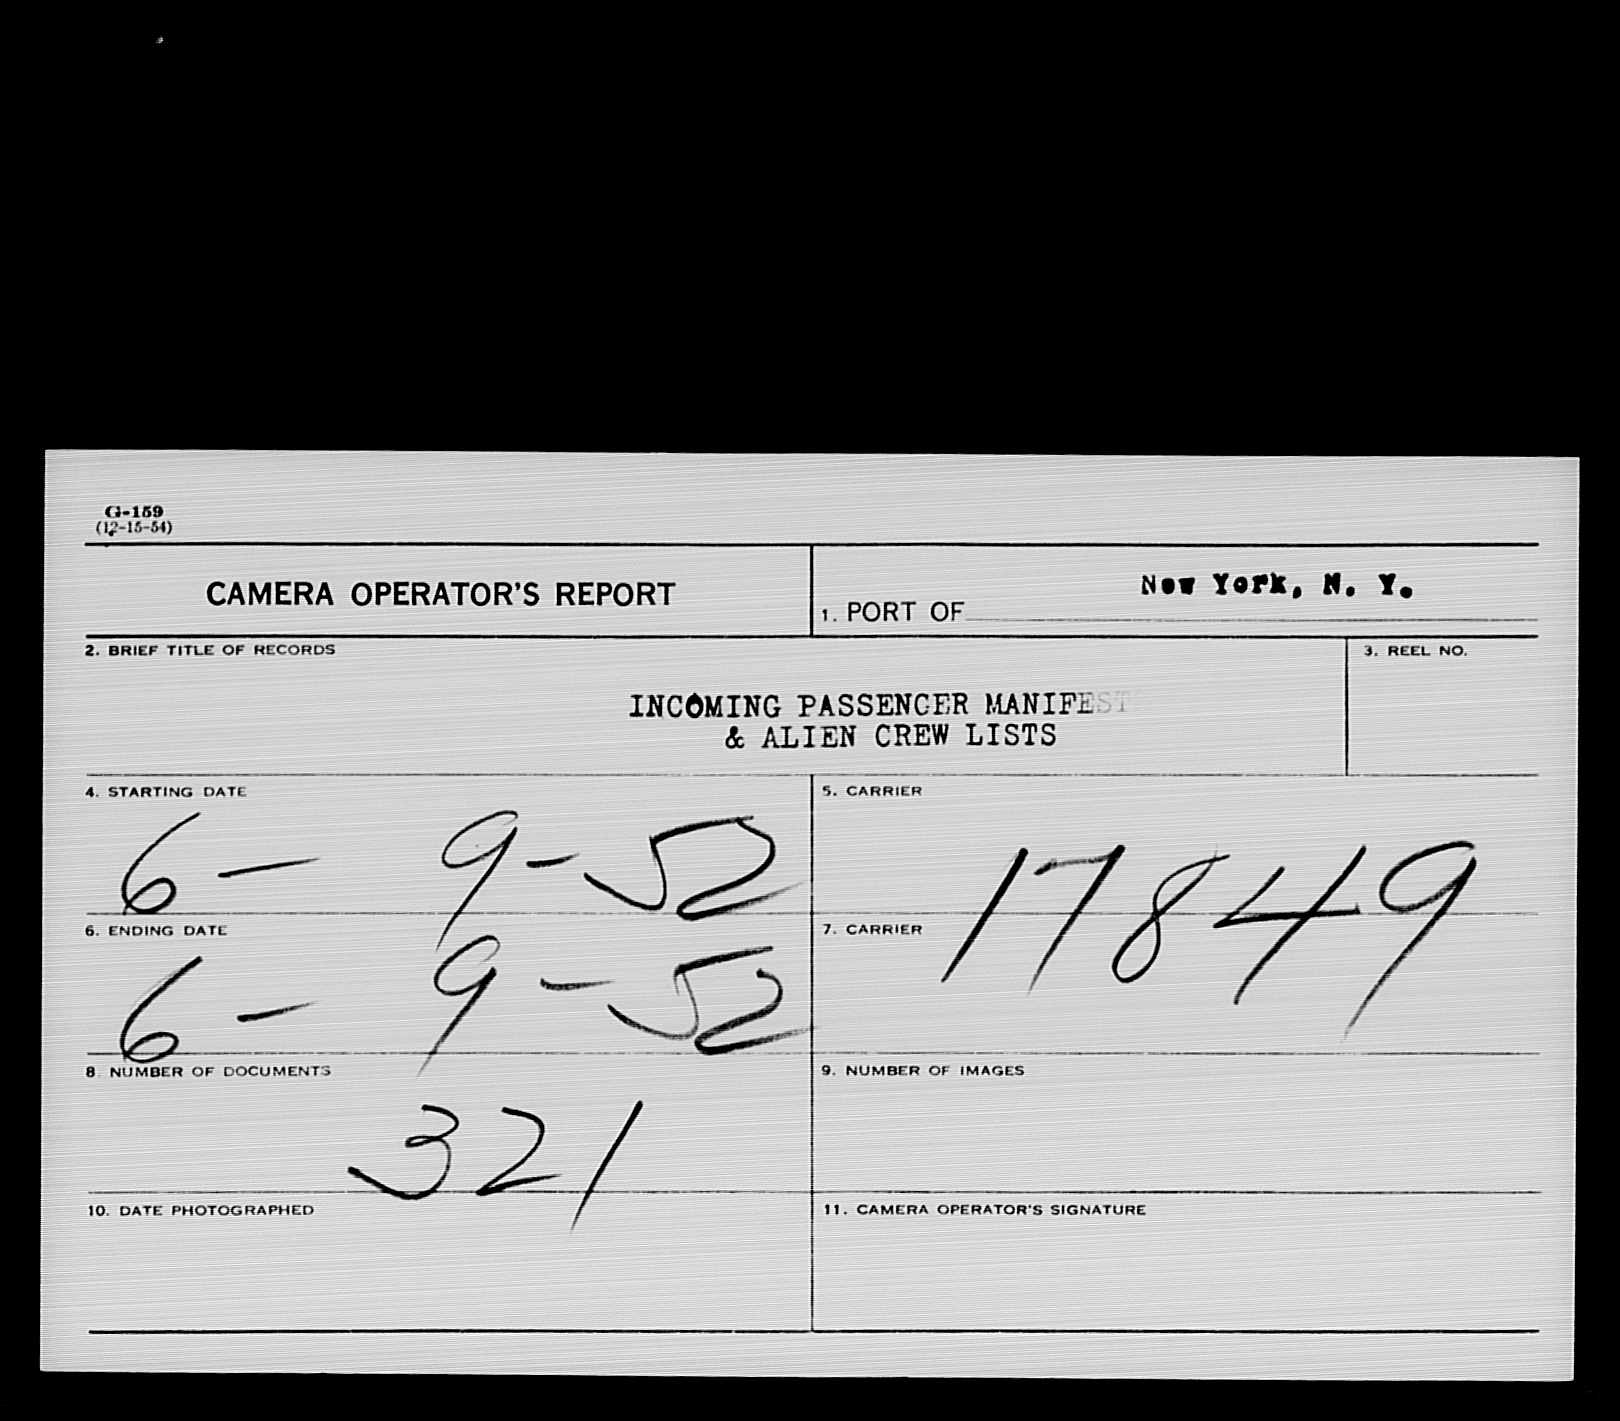 G-159
(12-15-54)
CAMERA OPERATOR'S REPORT
1. PORT OF New York, N. Y.
2. BRIEF TITLE OF RECORDS
3. REEL NO.
INCOMING PASSENGER MANIFEST
& ALIEN CREW LISTS
4. STARTING DATE
6- 9-52
5. CARRIER
17849
6. ENDING DATE
6- 9-52
7. CARRIER
8 NUMBER OF DOCUMENTS
321
9. NUMBER OF IMAGES
10. DATE PHOTOGRAPHED
11. CAMERA OPERATOR'S SIGNATURE